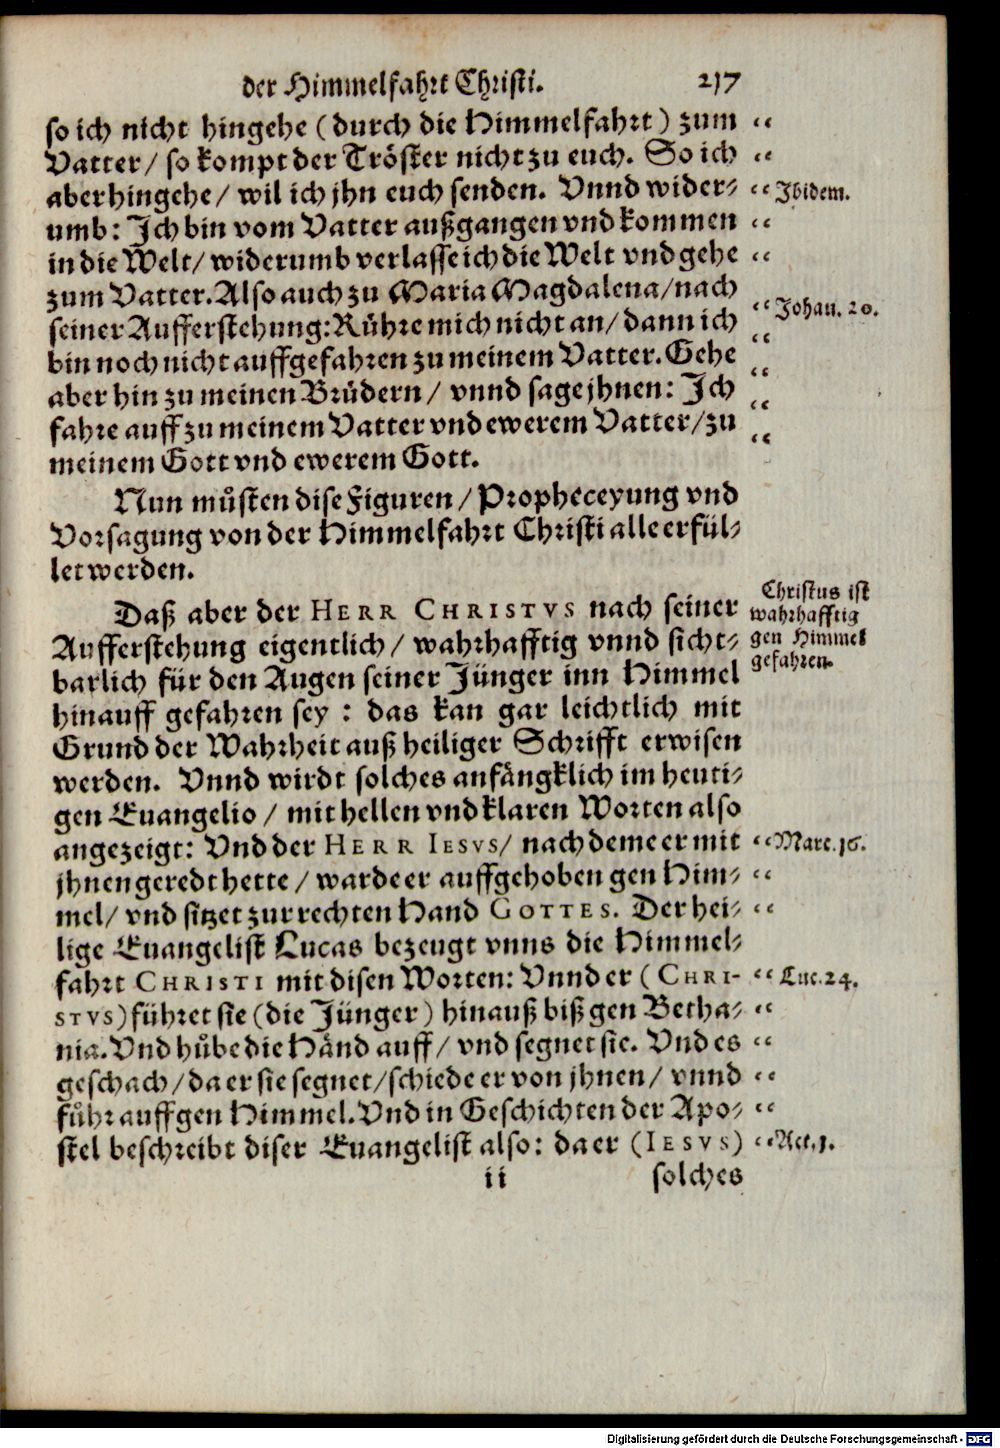 der Himmelfahrt Christi. 217
so ich nicht hingehe (durch die Himmelfahrt) zum “
Vatter / so kompt der Tröster nicht zu euch. So ich “
aber hingehe / wil ich jhn euch senden. Vnnd wider- “ Ibidem.
umb: Ich bin vom Vatter außgangen vnd kommen “
in die Welt / widerumb verlasse ich die Welt vnd gehe “
zum Vatter. Also auch zu Maria Magdalena / nach
seiner Aufferstehung: Růhre mich nicht an / dann ich “ Johan. 20.
bin noch nicht auffgefahren zu meinem Vatter. Gehe “
aber hin zu meinen Brůdern / vnnd sage jhnen: Ich “
fahre auff zu meinem Vatter vnd ewerem Vatter / zu “
meinem Gott vnd ewerem Gott. “
Nun můsten dise Figuren / Propheceyung vnd
Vorsagung von der Himmelfahrt Christi alle erfül-
let werden.
Daß aber der HERR CHRISTVS nach seiner
Aufferstehung eigentlich / wahrhafftig vnnd sicht-
barlich für den Augen seiner Jünger inn Himmel
hinauff gefahren sey : das kan gar leichtlich mit
Grund der Wahrheit auß heiliger Schrifft erwisen
werden. Vnnd wirdt solches anfängklich im heuti-
gen Euangelio / mit hellen vnd klaren Worten also
angezeigt: Vnd der HERR IESVS / nach deme er mit “ Marc. 16.
jhnen geredt hette / warde er auffgehoben gen Him- “
mel / vnd sitzet zur rechten Hand GOTTES. Der hei- “
lige Euangelist Lucas bezeugt vnns die Himmel-
fahrt CHRISTI mit disen Worten: Vnnd er (CHRI- “ Luc. 24.
STVS) führet sie (die Jünger) hinauß biß gen Betha- “
nia. Vnd hůbe die Händ auff / vnd segnet sie. Vnd es “
geschach / da er sie segnet / schiede er von jhnen / vnnd “
fůhr auff gen Himmel. Vnd in Geschichten der Apo- “
stel beschreibt diser Euangelist also: da er (IESVS) “ Act. 1.
ii solches
Christus ist
wahrhafftig
gen Himmel
gefahren.
Digitalisierung gefördert durch die Deutsche Forschungsgemeinschaft - DFG